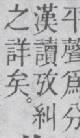 平聲爲分
漢讀攷糾
之詳矣。